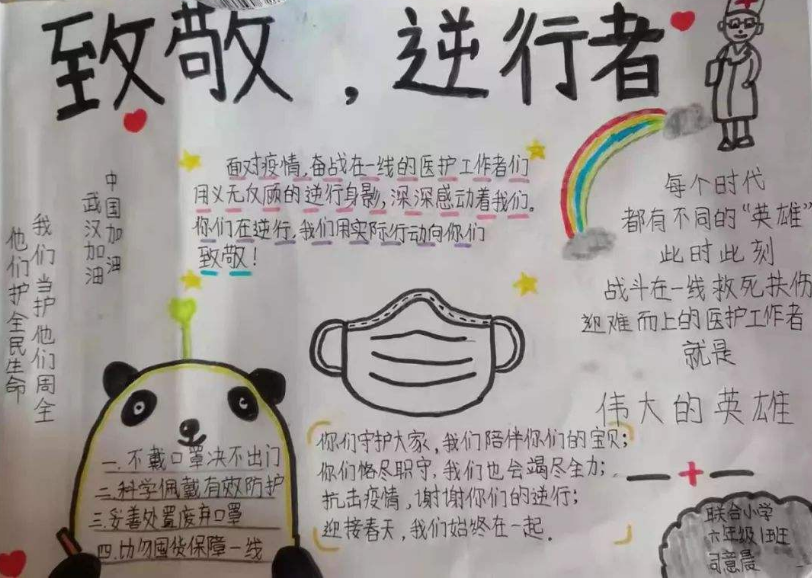 致敬，逆行者
面对疫情，奋战在一线的医护工作者们
用义无反顾的逆行身影，深深感动着我们。
你们在逆行，我们用实际行动向你们
致敬！
中国加油
武汉加油
我们当护他们周全
他们护全民生命
每个时代
都有不同的“英雄”
此时此刻
战斗在一线救死扶伤
迎难而上的医护工作者
就是
伟大的英雄
一.不戴口罩决不出门
二.科学佩戴有效防护
三.妥善处置废弃口罩
四.切勿囤货保障一线
你们守护大家，我们陪伴你们的宝贝；
你们恪尽职守，我们也会竭尽全力；
抗击疫情，谢谢你们的逆行；
迎接春天，我们始终在一起．
联合小学
六年级1班